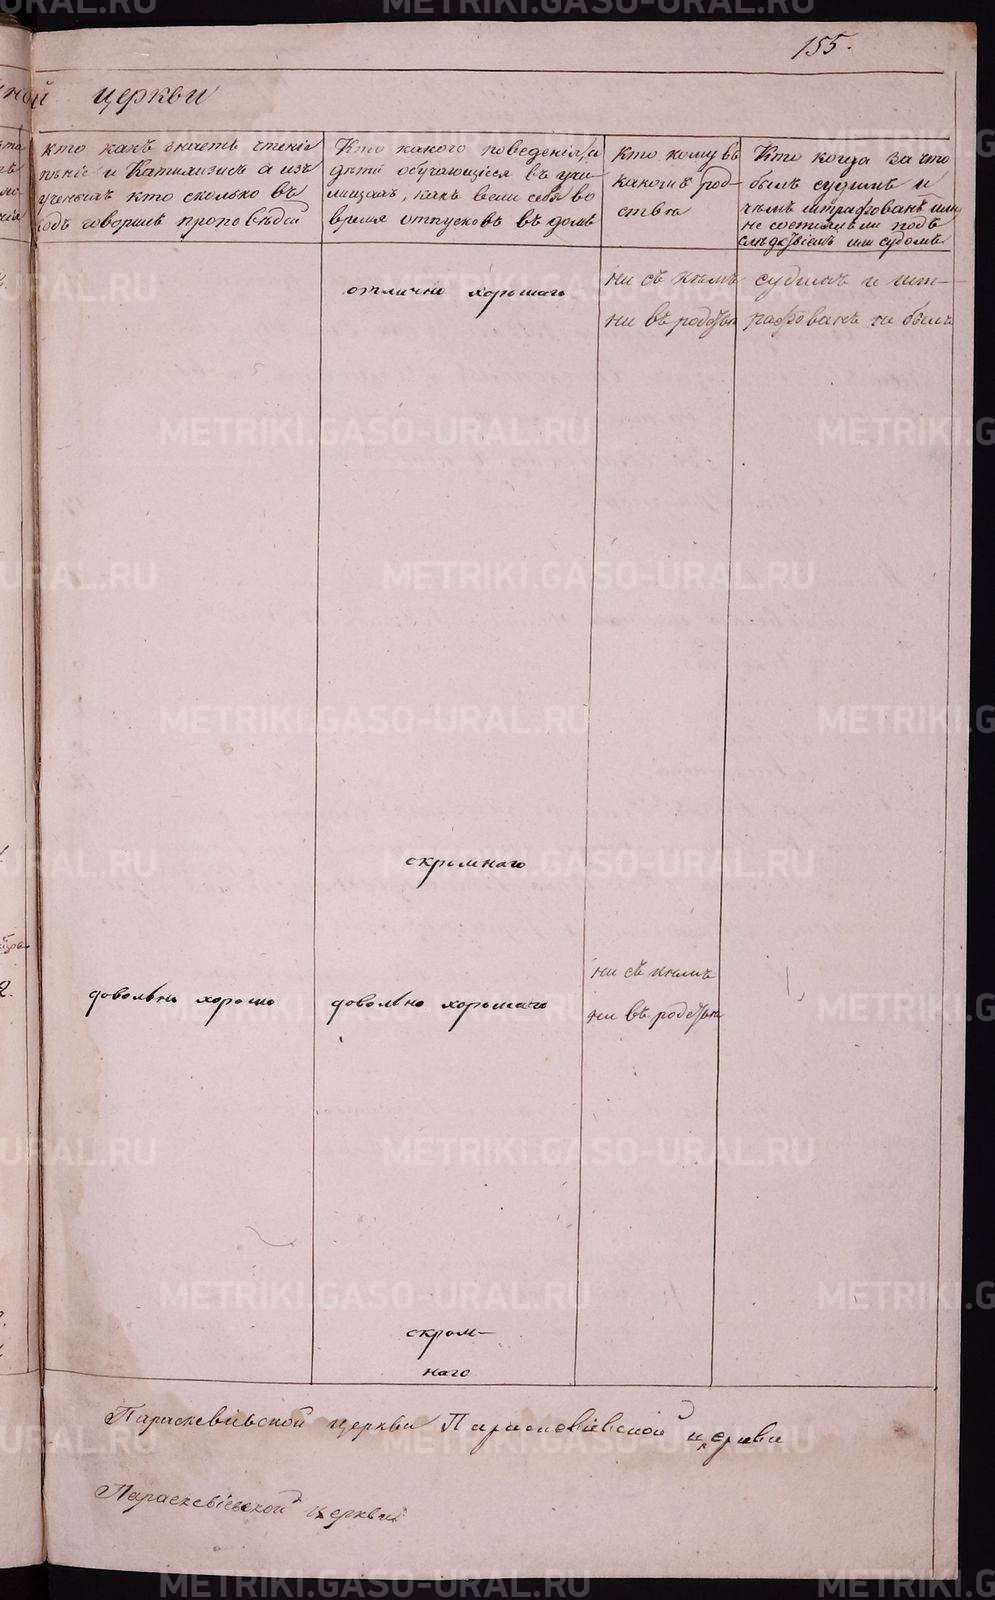 155.
ной церкви
кто какъ знаетъ чтеніе
пѣніе и Катихизисъ а изъ
ученыхъ кто сколько въ
годъ говорилъ проповѣдей
Кто какого поведенія, а
дѣти обучающіеся въ учи-
лищахъ, какъ вели себя во
время отпусковъ въ домъ
кто кому въ
какомъ род-
ствѣ
Кто когда за что
былъ судимъ и
чѣмъ штрафованъ или
не состоитъ ли подъ
слѣдствіемъ или судомъ
отлично хорошаго
ни съ кѣмъ
ни въ родствѣ
судимъ и шт-
рафованъ не былъ
скромнаго
довольно хорошо
довольно хорошаго
ни съ кѣмъ
ни въ родствѣ
скром-
наго
Параскевіевской церкви Параскевіевской церкви
Параскевіевской церкви
METRIKI.GASO-URAL.RU